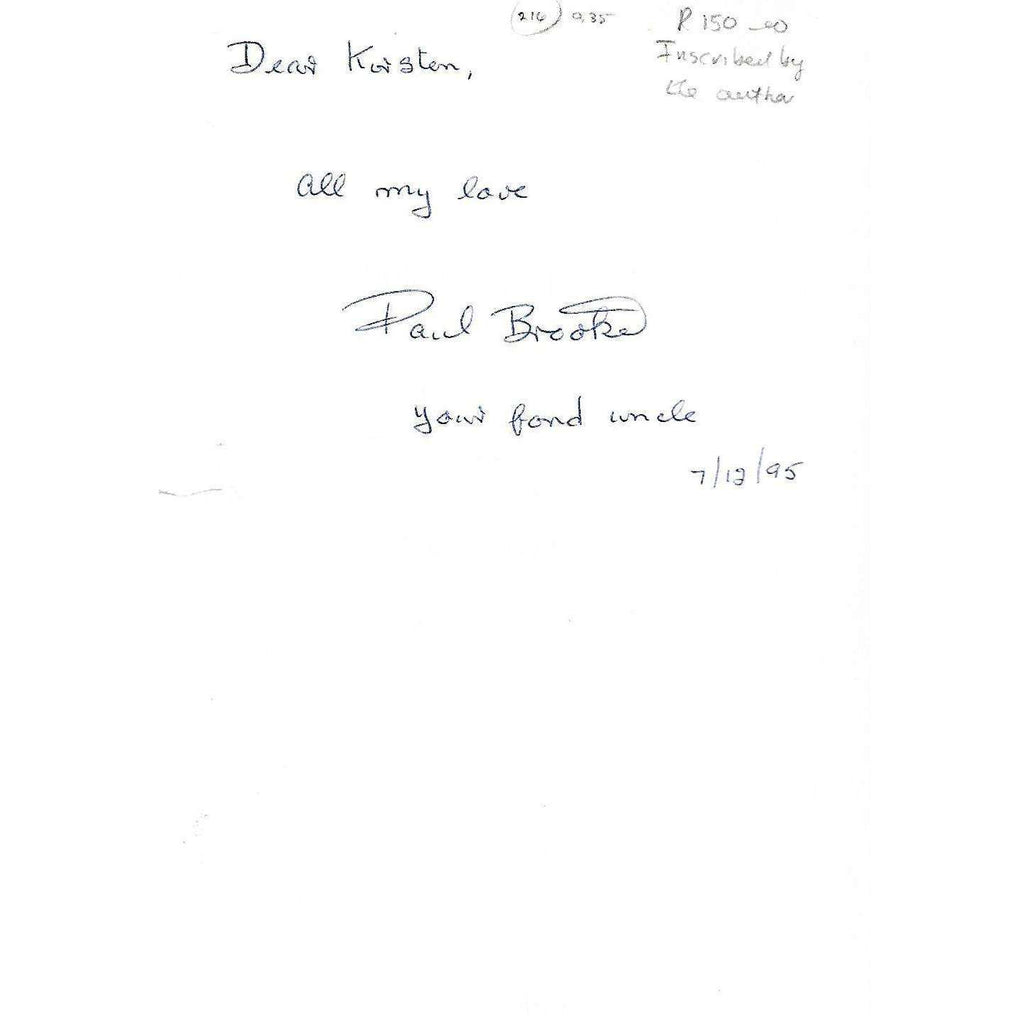 216 9.35
R 150-00
Inscribed by
the author
Dear Kirsten,
All my love
Paul Brooke
Your fond uncle
7/12/95